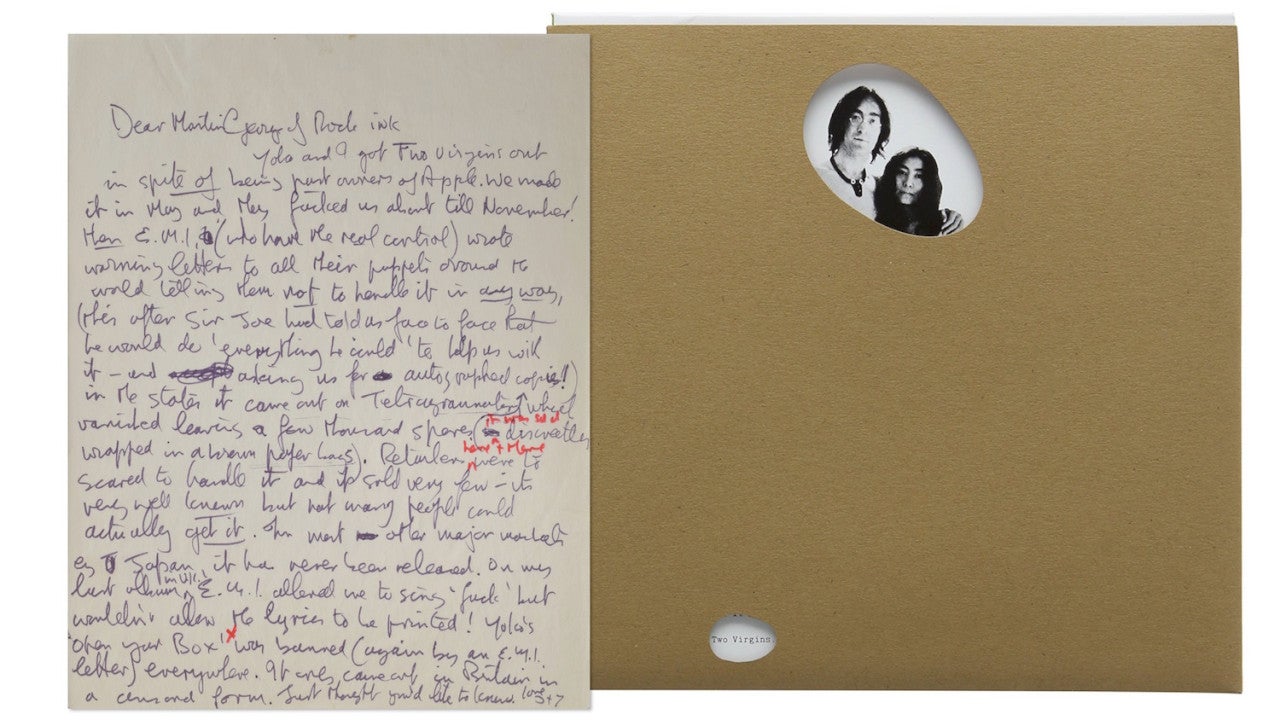 Dear Martin George of Rock ink
Yoko and I got Two Virgins out
in spite of being part owners of Apple. We made
it in May and they fucked us about till November!
Then E.M.I. (who have the real control) wrote
warning letters to all their puppets around the
world telling them not to handle it in any way,
(this after Sir Joe had told us face to face that
he would do 'everything he could' to help us with
it – and asking us for autographed copies!)
in the states it came out on Tetragrammaton which
it was sold
vanished leaving a few thousand spares ( discreetley
here + there
wrapped in a brown paper bags). Retailers were to
scared to handle it and it sold very few – its
very well known but not many people could
actually get it. In most other major markets
eg Japan, it has never been released. On my
last album in U.K., E.M.I. allowed me to sing 'fuck' but
wouldn't allow the lyrics to be printed! Yoko's
'Open your Box' x was banned (again by an E.M.I.
letter) everywhere. It only came out in Britain in
a censord form. Just thought you'd like to know. love
J+Y
Two Virgins.